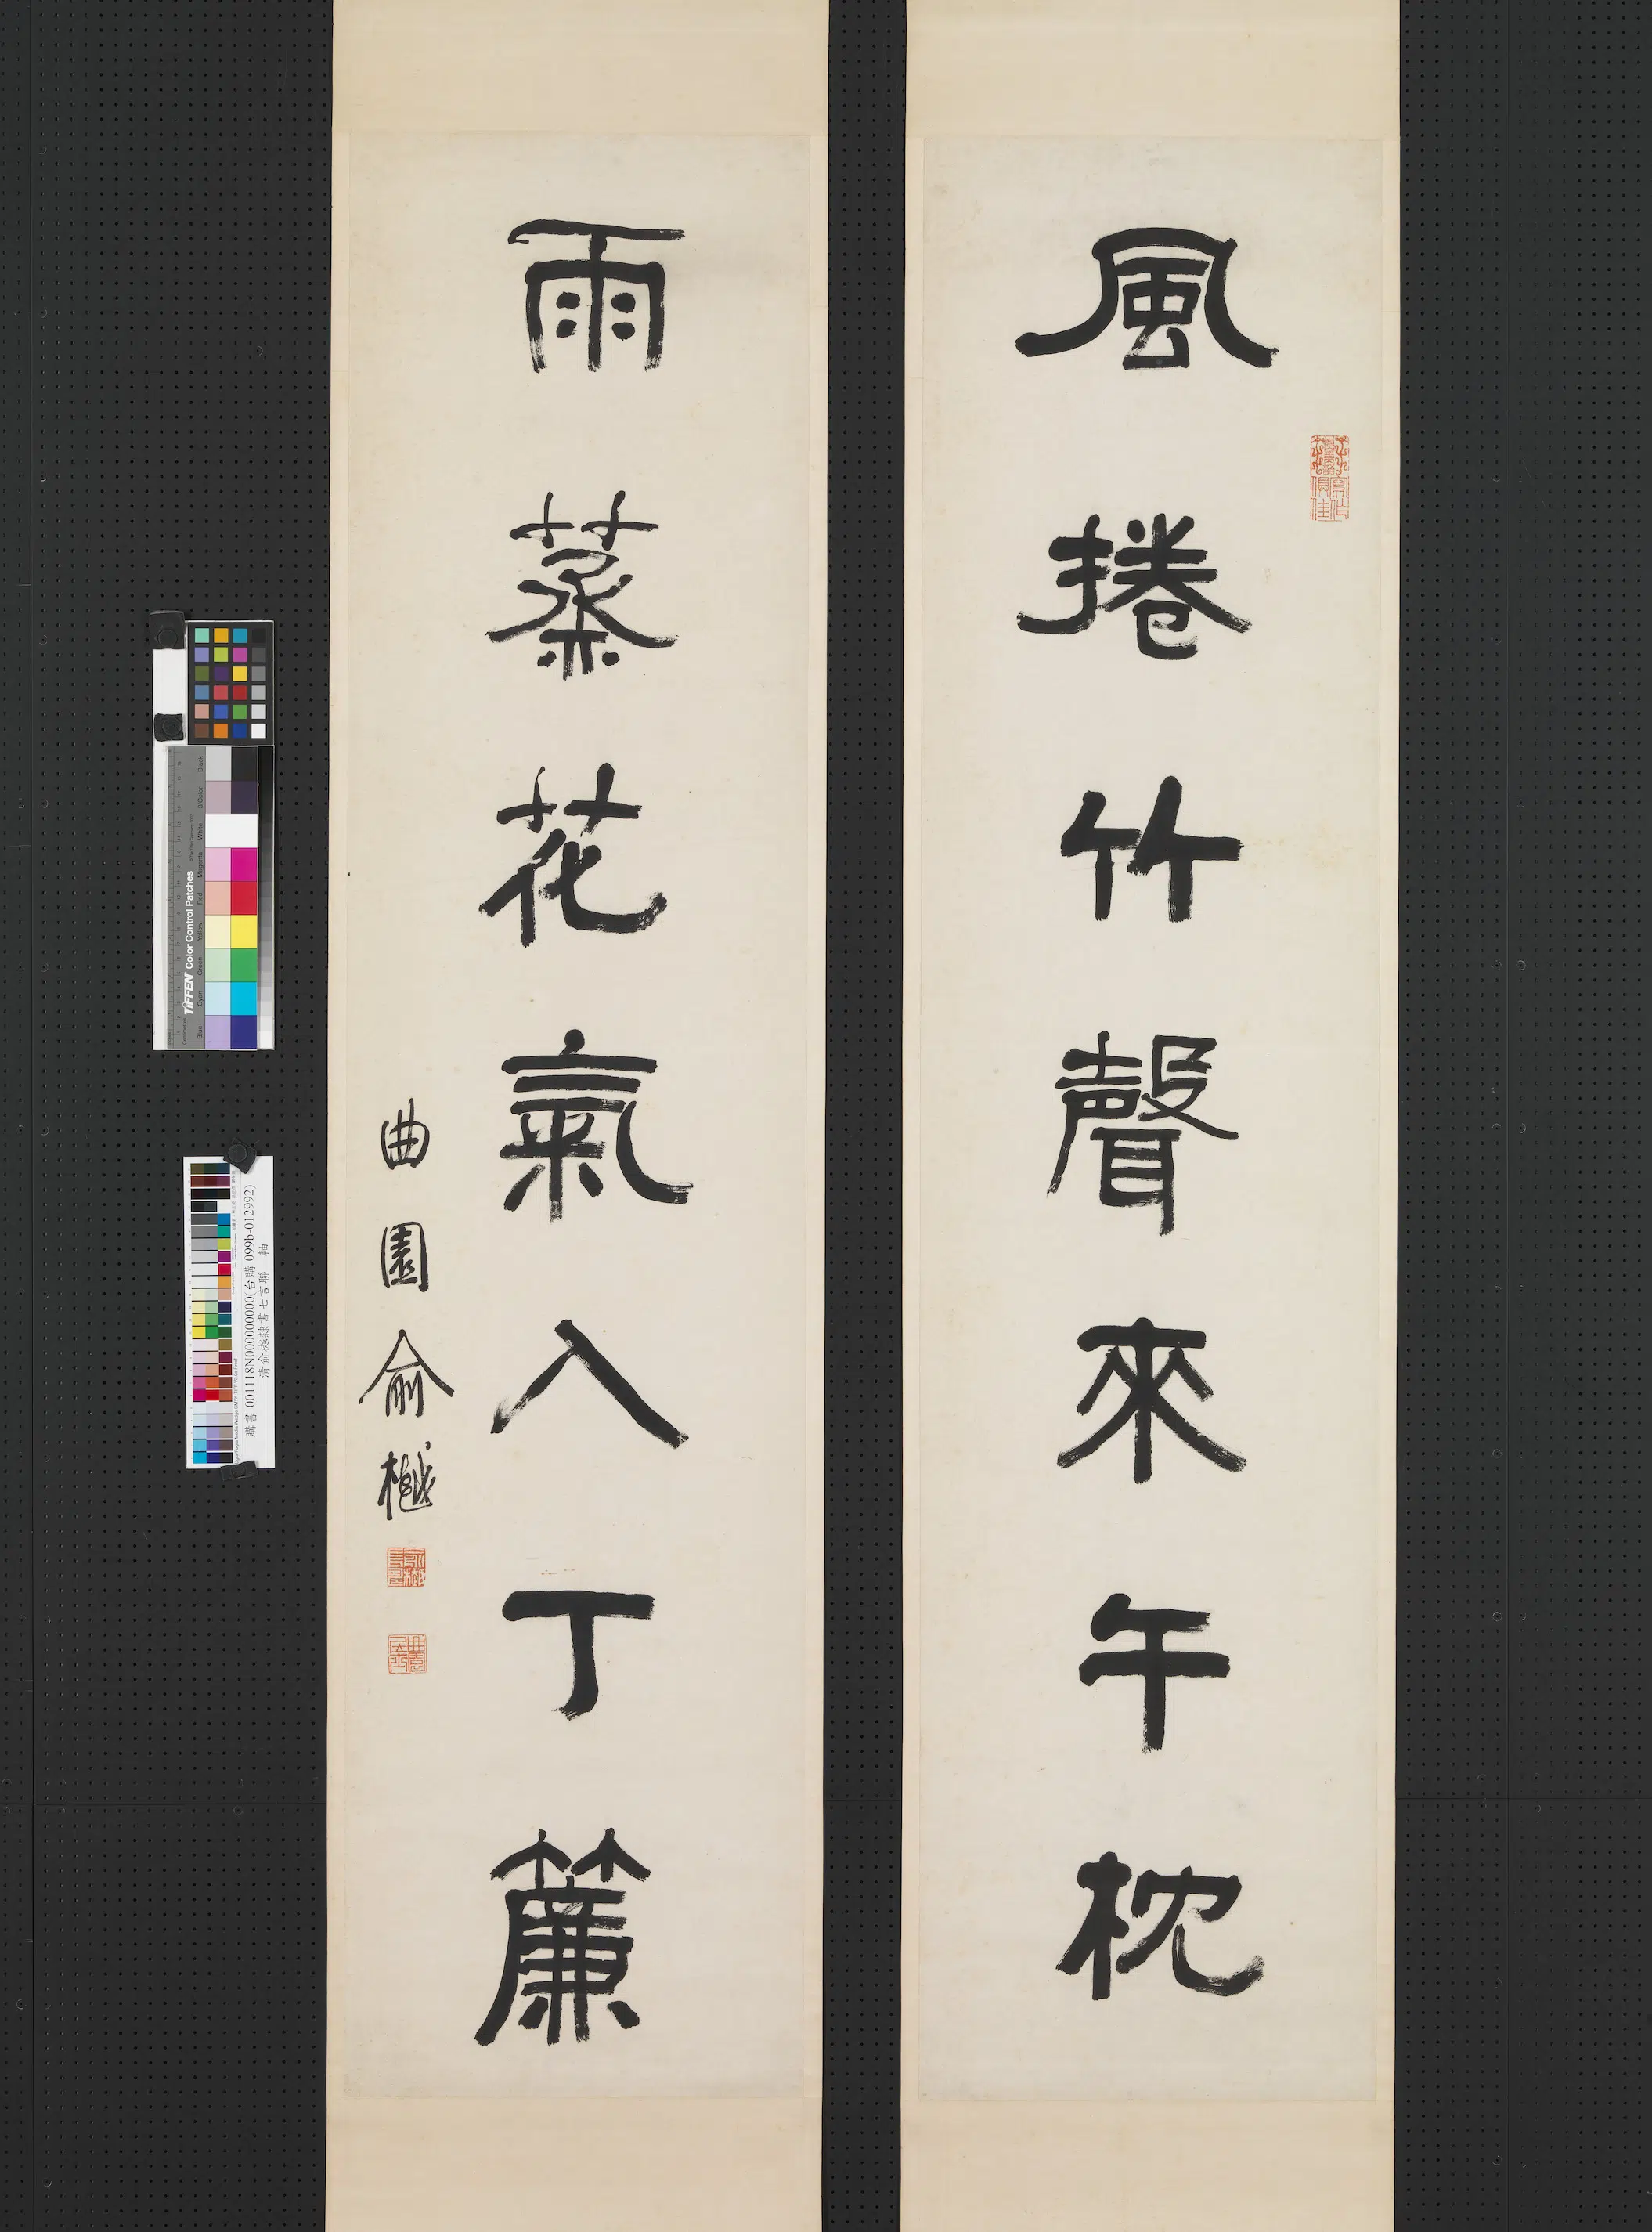 風捲竹聲來午枕
雨蒸花氣入丁簾
曲園俞樾
購書 001118N000000000(台購 099b-012992)
清俞樾隸書七言聯 軸
TIFFEN Color Control Patches
Blue Cyan Green Yellow Red Magenta White 3/Color Black